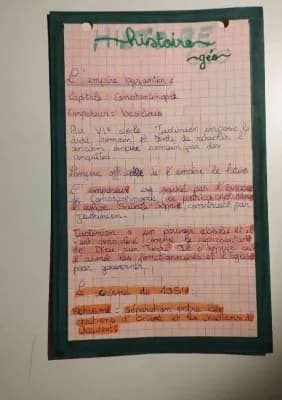 histoire
géo
L'empire byzantin :
Capitale : Constantinople
Empereur : basileus
Au VIe siècle Justinien impose le
droit romain et tente de
ancien empire romain par des
conquêtes
Langue de l'empire le latin
L'empereur est par l'
de Constantinople
l'église Sainte Sophie construite par
Justinien.
Justinien a un pouvoir absolu et il
est considéré comme le représentant
de Dieu sur Terre
l'armée les fonctionnaires et l'église
pour gouverner.
Le schisme de 1054
Schisme = Séparation entre
chrétiens d'Orient et les chrétiens d'
Occident